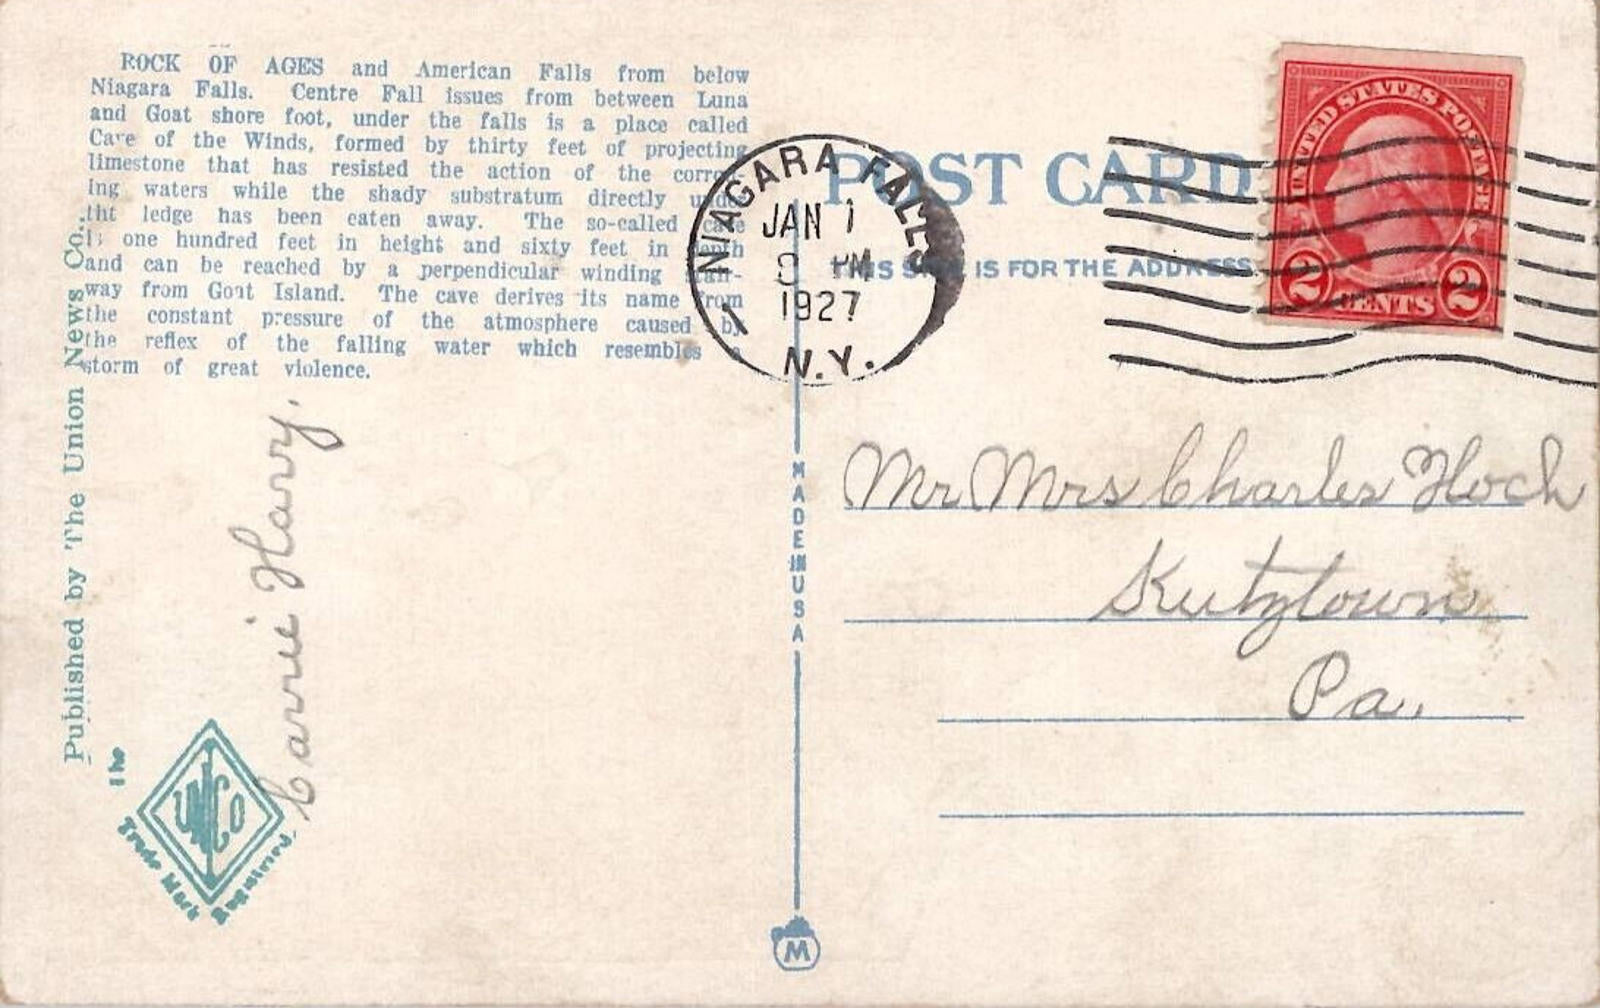 ROCK OF AGES and American Falls from below
Niagara Falls. Centre Fall issues from between Luna
and Goat shore foot, under the falls is a place called
Cave of the Winds, formed by thirty feet of projecting
limestone that has resisted the action of the corrod-
ing waters while the shady substratum directly under
tht ledge has been eaten away. The so-called cave
is one hundred feet in height and sixty feet in depth
and can be reached by a perpendicular winding stair-
way from Goat Island. The cave derives its name from
the constant pressure of the atmosphere caused by
the reflex of the falling water which resembles a
storm of great violence.
Published by The Union News Co.
The
UNCo
Trade Mark
Registered.
Carrie Harry.
NIAGARA FALLS
JAN 1
PM
1927
N.Y.
1
POST CARD
THIS SIDE IS FOR THE ADDRESS
UNITED STATES POSTAGE
2 CENTS 2
MADE IN USA
M
Mr Mrs Charles Hoch
Kutztown
Pa.